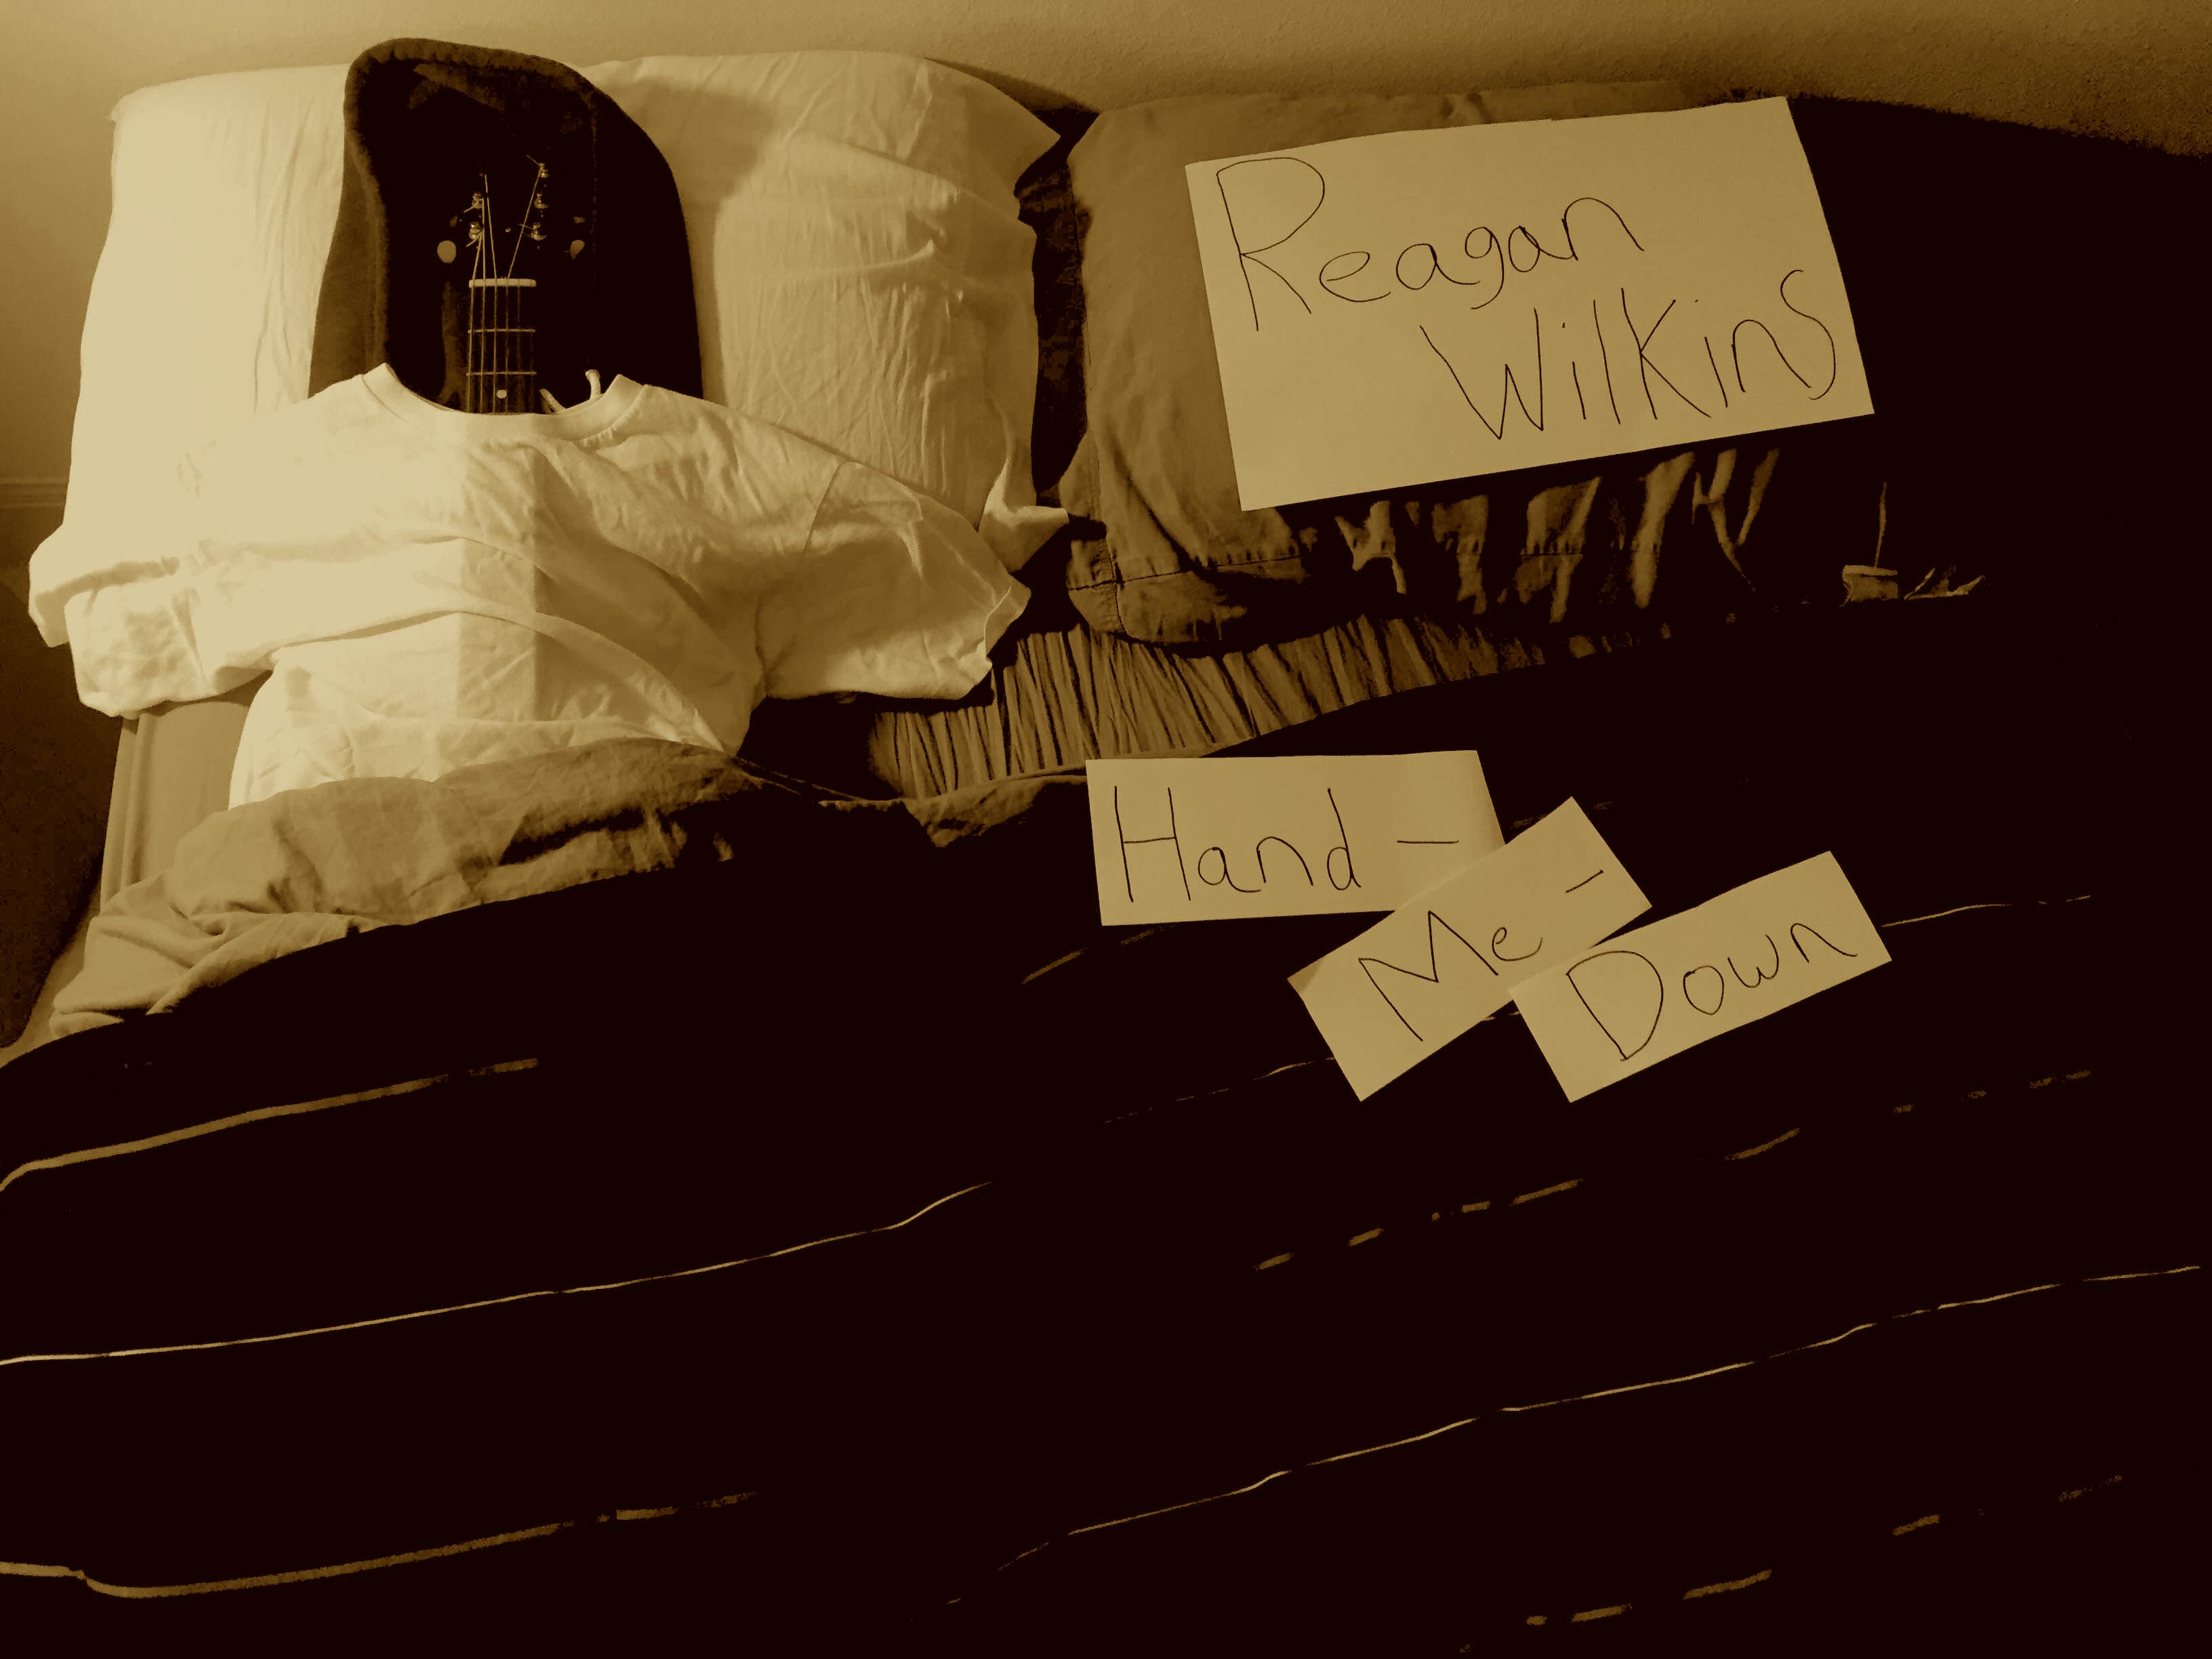 Reagan
Wilkins
Hand -
Me -
Down